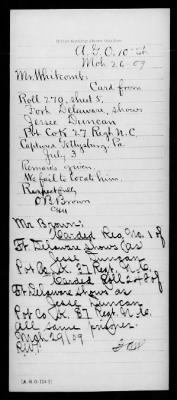 A.G.O. 10-
Mch 26-09
Mr. Whitcomb:
Card from
Roll 270, sheet 8,
Fort Delaware, shows
Jesse Duncan
Pvt Co K 27 Regt N.C.
Captured Gettysburg, Pa
July 3
Remarks given.
We fail to locate him.
Respectfully
Brown
Mr. Brown:
Carded Reg. No. 1 of
Ft Delaware shows as
Jesse Duncan
Pvt Co K. 27 Regt. N.C.
Carded Roll 248 of
Ft Delaware shows as
Jesse Duncan
Pvt Co K. 27 Regt. N.C.
All same
Mch 29/09